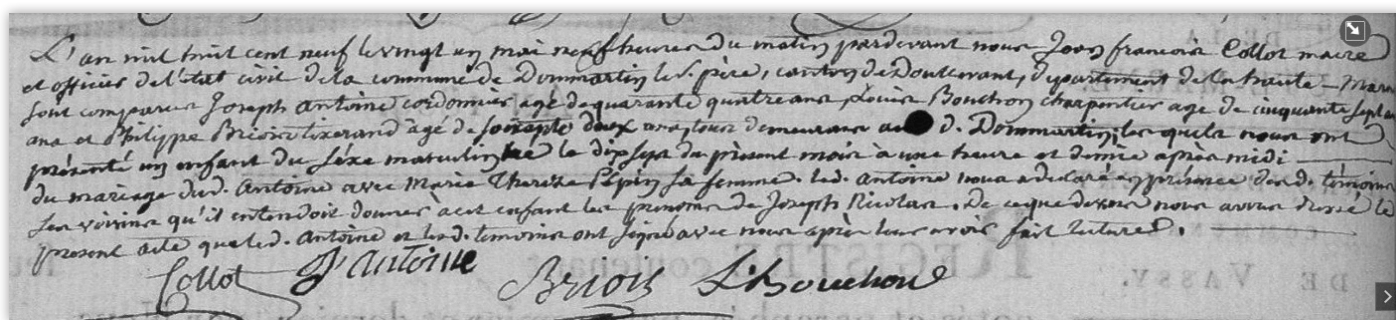 L'an mil huit cent neuf le vingt un mai neuf heures du matin pardevant nous Jean francois Collot maire
et officier de l'état civil de la commune de Dommartin le St. père, canton de Doulevant, département de la haute-Marne
sont comparus Joseph Antoine cordonnier agé de quarante quatre ans, Louis Bouchon charpentier age de cinquante sept
ans et Philippe Briois tixerand âgé de soixante deux ans tous demeurans au d. Dommartin; lesquels nous ont
présenté un enfant du séxe masculin né le dix sept du présent mois à une heure et demie après midi
du mariage dud. Antoine avec Marie Thereze Pepin sa femme. led. Antoine nous a declaré en présence desd. témoins
ses voisins qu'il entendoit donner à cet enfant les prenoms de Joseph Nicolas. De ce que dessus nous avons dressé le
present acte que led. Antoine et lesd. temoins ont signé avec nous après leur avoir fait lecture.
Collot J Antoine Briois L Bouchon
REGISTRE contenant
DE VASSY.